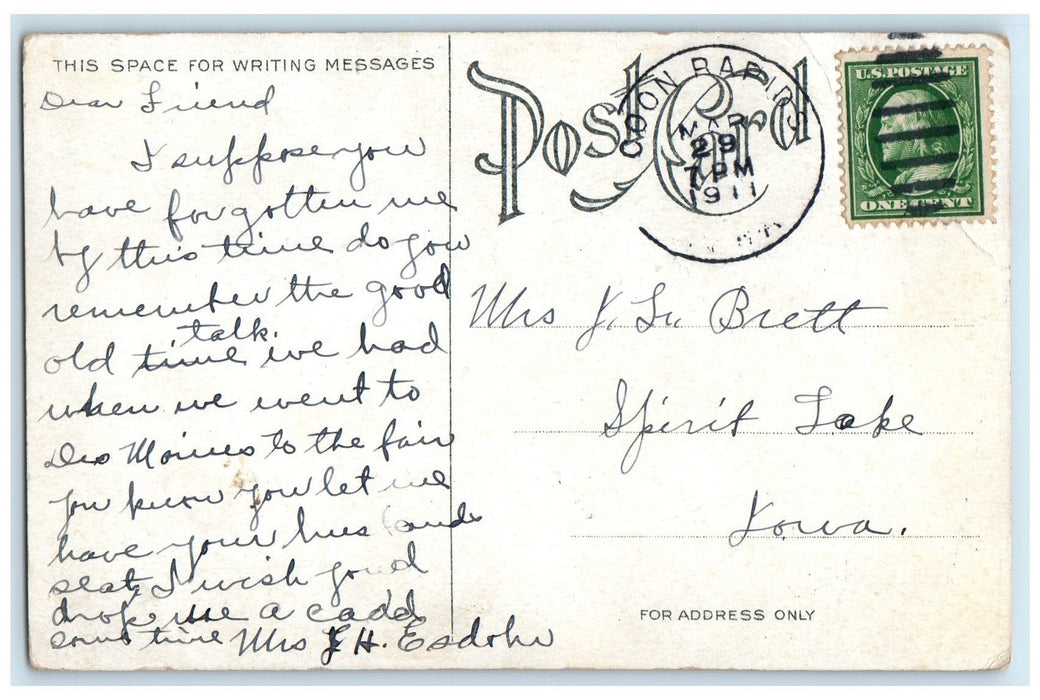 THIS SPACE FOR WRITING MESSAGES
Dear Friend
I suppose you
have forgotten me
by this time do you
remember the good
talk.
old time we had
when we went to
Des Moines to the fair
you know you let me
have your husbands
seat, I wish you'd
drop me a cadd
some time Mrs J H. Esdohr
Post Card
COON RAPIDS
MAR
29
7 PM
1911
U.S. POSTAGE
ONE CENT
Mrs J. Brett
Spirit Lake
Iowa.
FOR ADDRESS ONLY